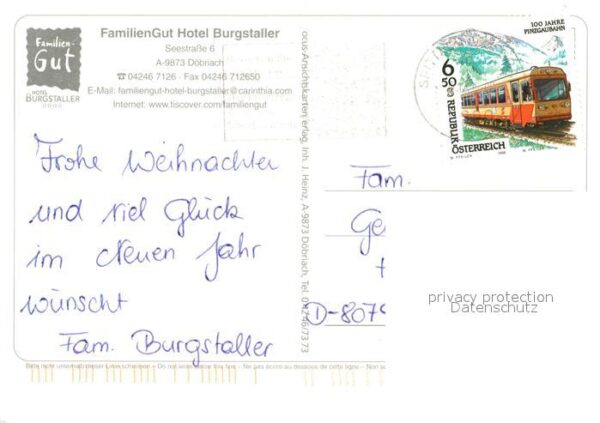 Familien-
Gut
HOTEL
BURGSTALLER
FamilienGut Hotel Burgstaller
Seestraße 6
A-9873 Döbriach
☎ 04246 7126 · Fax 04246 712650
E-Mail: familiengut-hotel-burgstaller@carinthia.com
Internet: www.tiscover.com/familiengut
100 JAHRE
PINZGAUBAHN
6
50
REPUBLIK
ÖSTERREICH
Frohe Weihnachten
und viel Glück
im Neuen Jahr
wünscht
Fam. Burgstaller
ocus-Ansichtskarten erlag, Inh. J. Heinz, A-9873 Döbriach, Tel. 0 42 46/73 73
Fam.
Ge
D-8079
privacy protection
Datenschutz
Bitte nicht unterhalb dieser Linie schreiben – Do not write below this line – Ne pas écrire au dessous de cette ligne